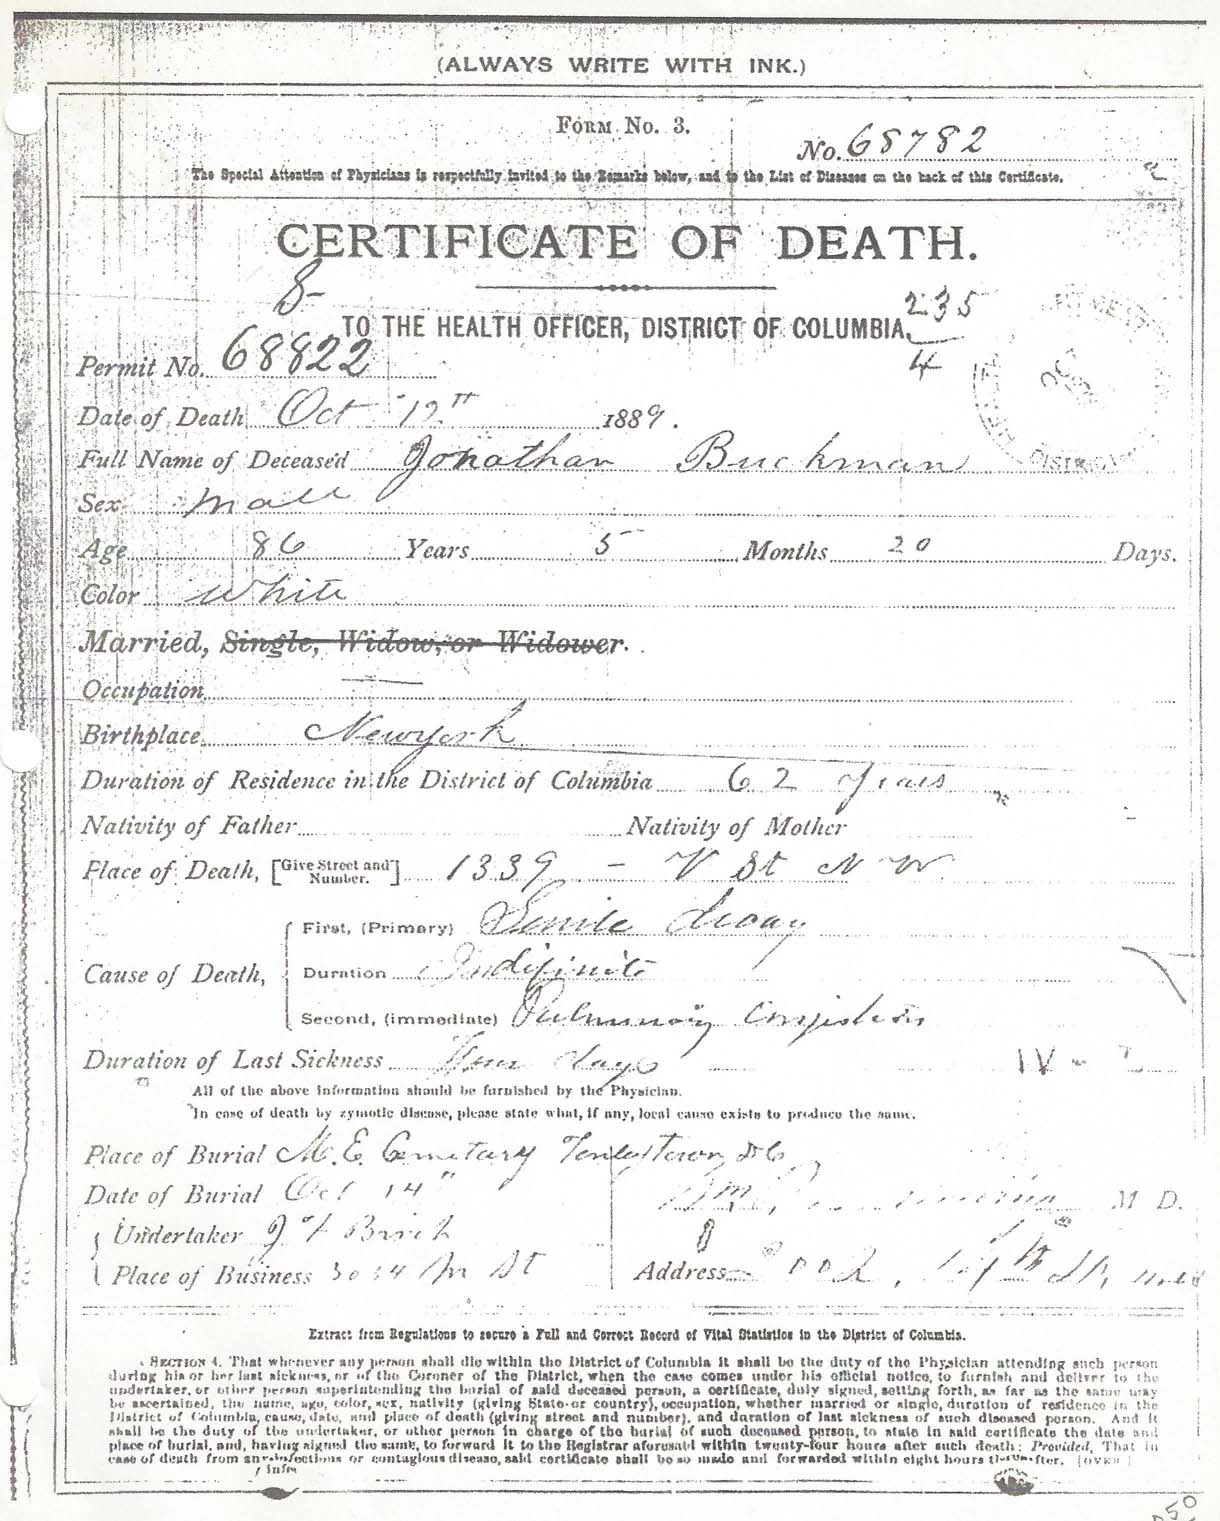 (ALWAYS WRITE WITH INK.)
FORM No. 3.
No. 68782
The Special Attention of Physicians is respectfully invited to the Remarks below, and to the List of Diseases on the back of this Certificate.
CERTIFICATE OF DEATH.
8-
235
TO THE HEALTH OFFICER, DISTRICT OF COLUMBIA.
4
Permit No. 68822
Date of Death Oct 12th 1889.
Full Name of Deceased Jonathan Buckman
Sex Male
Age 86 Years 5 Months 20 Days.
Color White
Married, Single, Widow, or Widower.
Occupation
Birthplace Newyork
Duration of Residence in the District of Columbia 62 years
Nativity of Father Nativity of Mother
Place of Death, [Give Street and Number.] 1339 - V St N W.
Cause of Death, First, (Primary) Senile decay
Duration Indefinite
Second, (immediate) Pulmonary Congestion
Duration of Last Sickness days
IV -
All of the above information should be furnished by the Physician.
In case of death by zymotic disease, please state what, if any, local cause exists to produce the same.
Place of Burial M. E. Cemetary Tenleytown, D C
Date of Burial Oct 14" M D.
Undertaker J T Birch
Place of Business 3034 M St Address
Extract from Regulations to secure a Full and Correct Record of Vital Statistics in the District of Columbia.
SECTION 4. That whenever any person shall die within the District of Columbia it shall be the duty of the Physician attending such person
during his or her last sickness, or of the Coroner of the District, when the case comes under his official notice, to furnish and deliver to the
undertaker, or other person superintending the burial of said deceased person, a certificate, duly signed, setting forth, as far as the same may
be ascertained, the name, age, color, sex, nativity (giving State or country), occupation, whether married or single, duration of residence in the
District of Columbia, cause, date, and place of death (giving street and number), and duration of last sickness of such diseased person. And it
shall be the duty of the undertaker, or other person in charge of the burial of such deceased person, to state in said certificate the date and
place of burial, and, having signed the same, to forward it to the Registrar aforesaid within twenty-four hours after such death: Provided, That in
case of death from any infectious or contagious disease, said certificate shall be so made and forwarded within eight hours thereafter. [OVER]